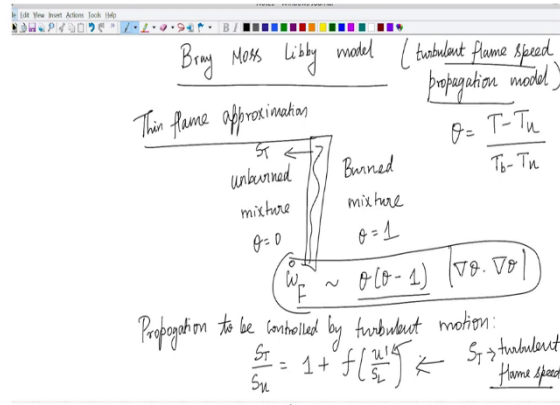 File Edit View Insert Actions Tools Help
Bray Moss Libby model (turbulent flame speed
propagation model)
Thin flame approximation
θ = T - Tu / Tb - Tu
ST ←
unburned
mixture
θ = 0
Burned
mixture
θ = 1
ẇF ~ θ(θ - 1) |∇θ · ∇θ|
Propagation to be controlled by turbulent motion:
ST / Su = 1 + f(u' / SL) ← ST → turbulent
flame speed